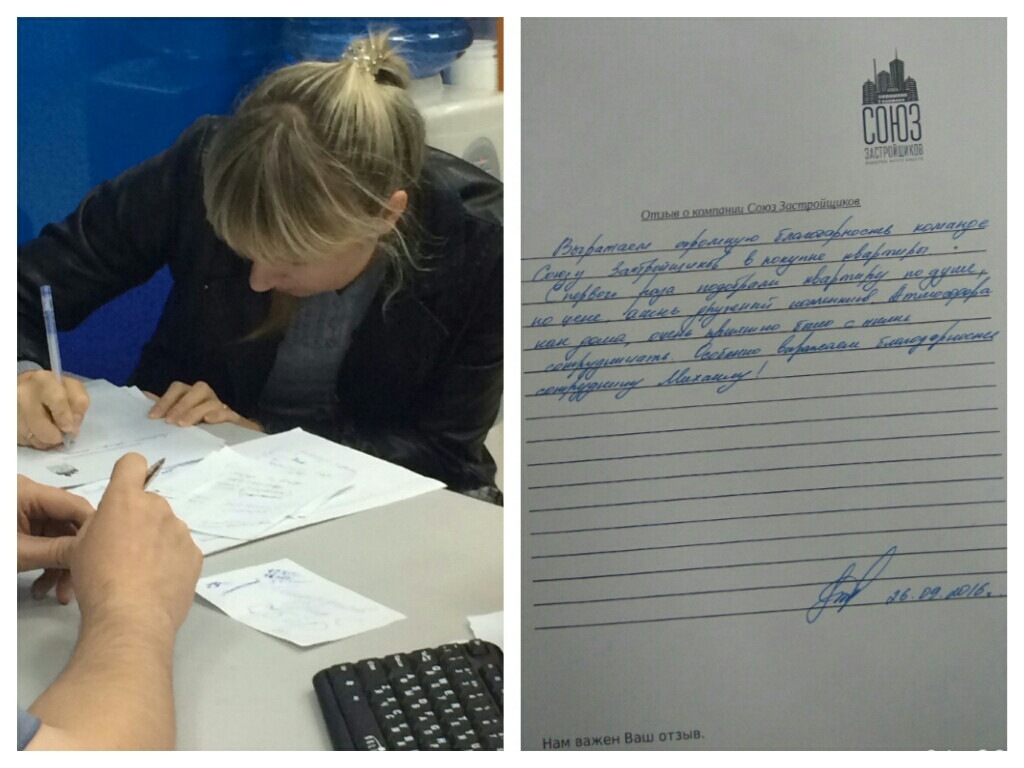 СОЮЗ
ЗАСТРОЙЩИКОВ
Отзыв о компании Союз Застройщиков
Выражаем огромную благодарность команде
Союзу Застройщиков в покупке квартиры.
С первого раза подобрали квартиру по душе,
по цене. Очень дружный коллектив Атмосфера
как дома, очень приятно было с ними
сотрудничать. Особенно выражаем благодарность
сотруднику Михаилу!
26.09.2016г.
Нам важен Ваш отзыв.